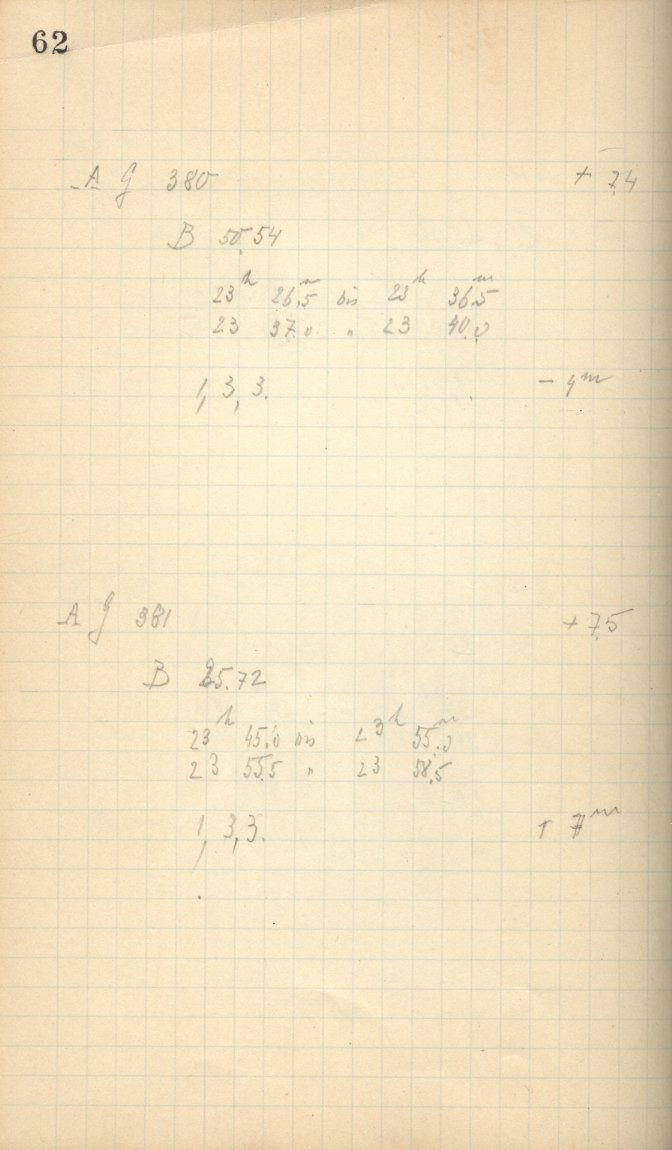 62
A G 380 + 7.4
B 50.54
23h 26.5m bis 23h 36.5m
23 37.0 " 23 40.0
1, 3, 3. - 4m
A G 381 + 7.5
B 25.72
23h 45.0 bis 23h 55.0m
23 55.5 " 23 58.5
1, 3, 3. + 7m